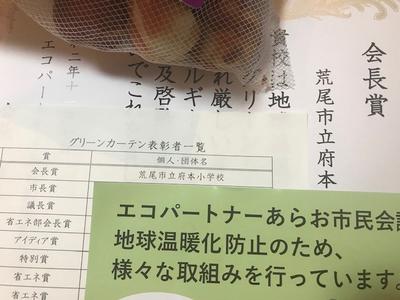 会長賞
荒尾市立府本
貴校は地
クリ
れ厳
ルギ
及啓
でこれ
エコパート
グリーンカーテン表彰者一覧
賞 個人・団体名
会長賞 荒尾市立府本小学校
市長賞
議長賞
省エネ部会長賞
アイディア賞
特別賞
省エネ賞
省エネ賞
エコパートナーあらお市民会
地球温暖化防止のため、
様々な取組みを行っています。